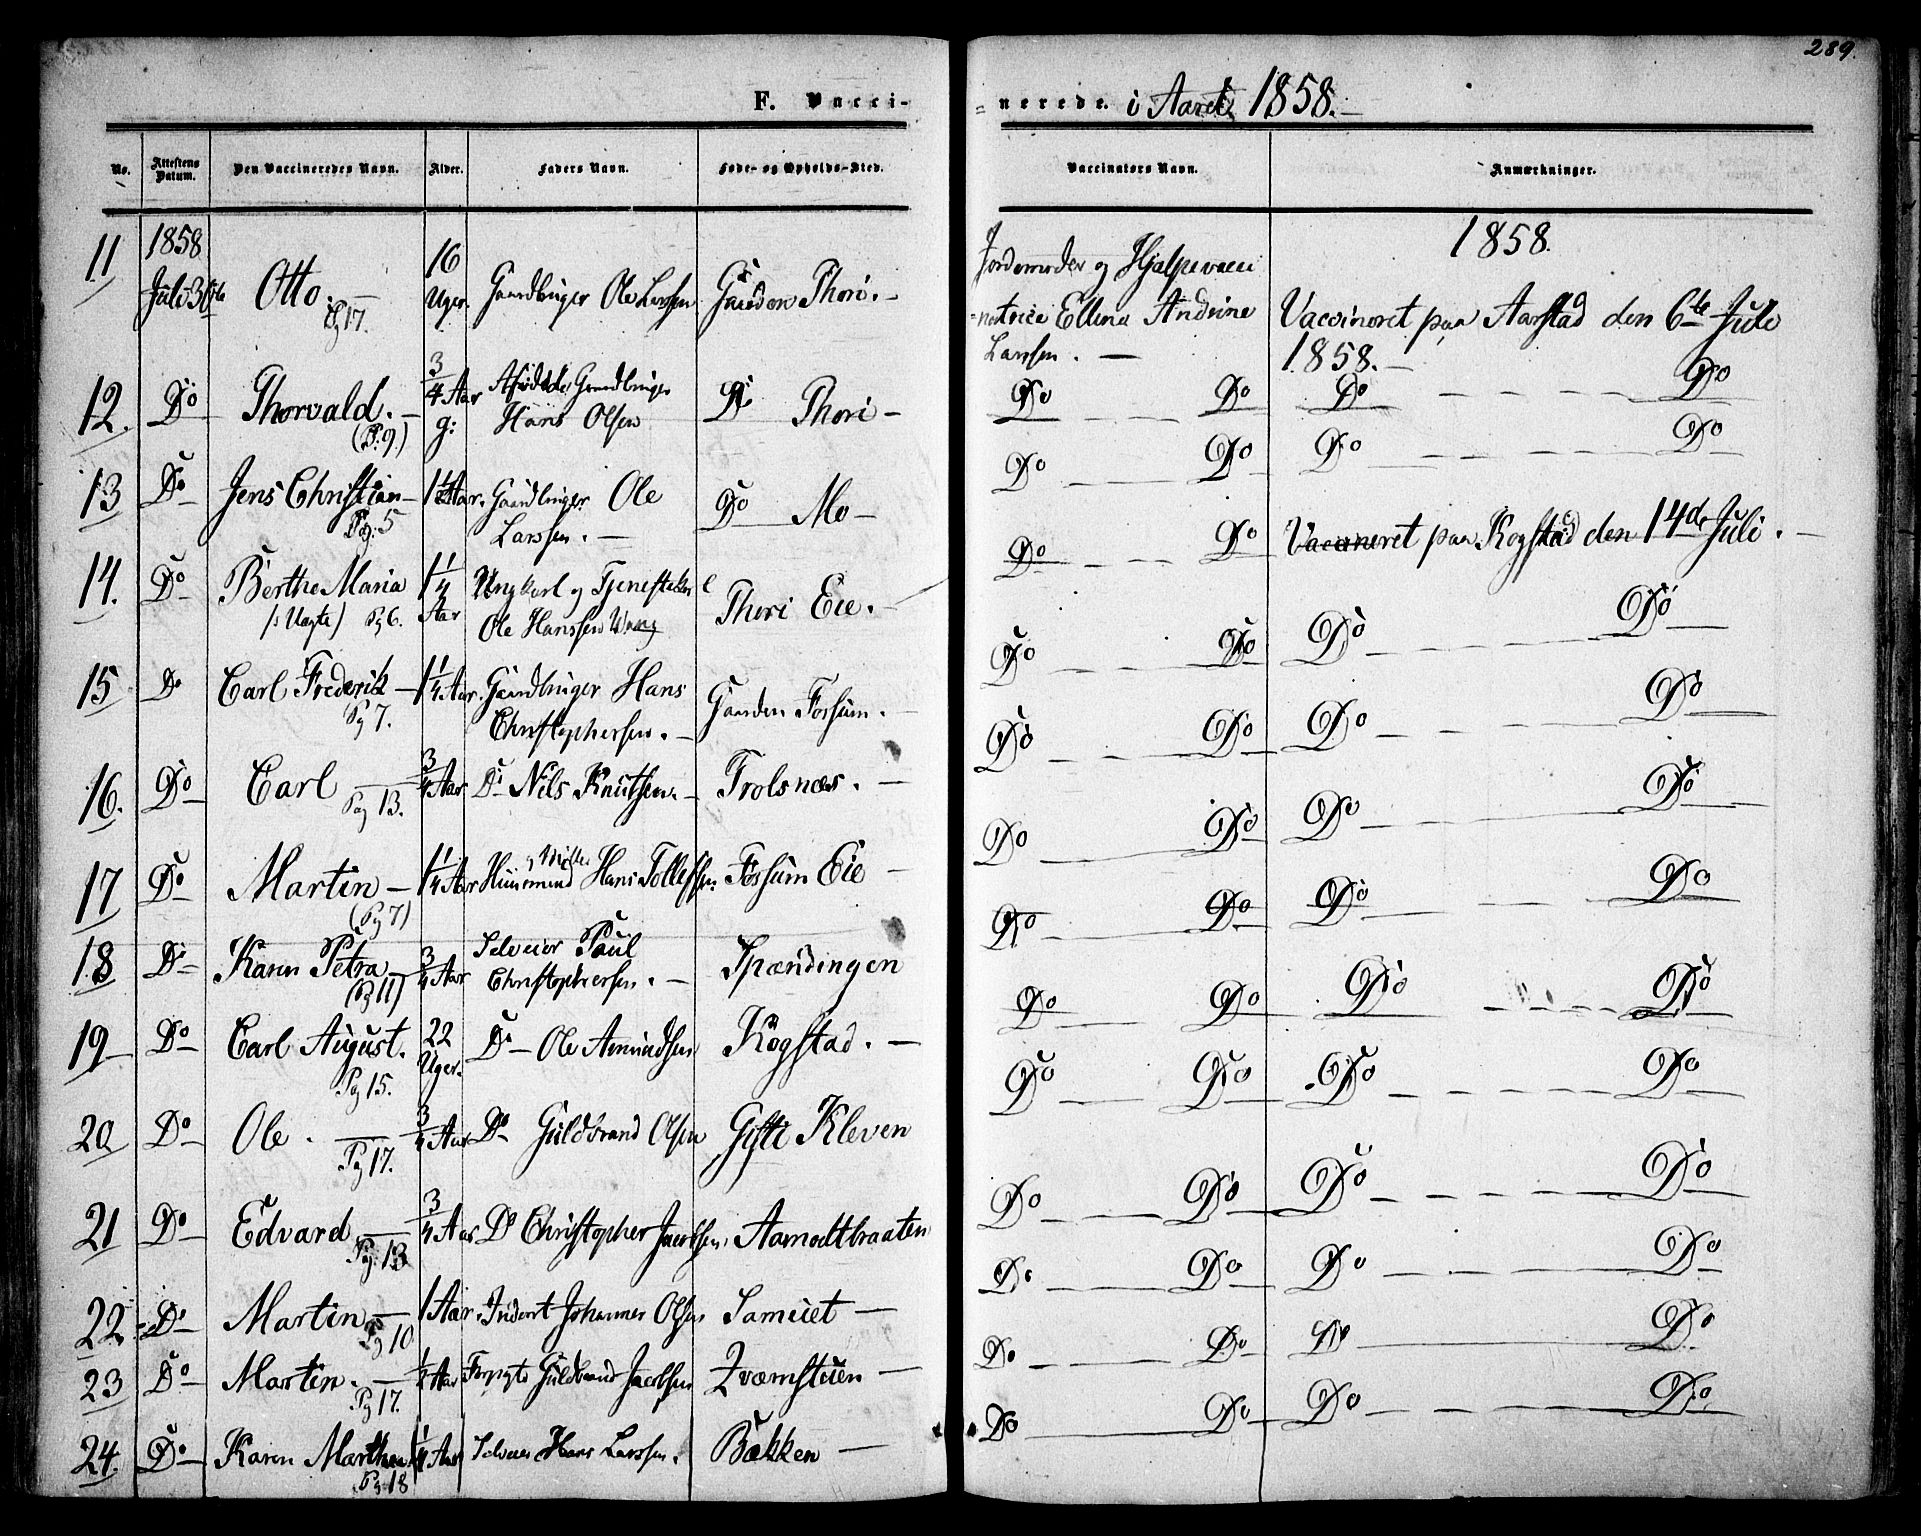 289.
F. Vacci-
=nerede. i Aaret 1858.-
No. Attestens Datum. Den Vaccineredes Navn. Alder. Faders Navn. Føde- og Opholds-Sted. Vaccinators Navn. Anmærkninger.
11 1858 Juli 30te Otto. Pg 17. 16 Uger. Gaardbruger Ole Larssen Gaarden Thori.- Jordemoder og Hjelpevacci
=natrice Ellena Andrine
Larssen. -
1858.
Vaccineret paa Aarstad den 6te Juli
1858.-
12. Do Thorvald.- (P: 9.) 3/4 Aar g: Afdøde Gaardbruger Hans Olsen Do Thori- Do Do Do Do
13 Do Jens Christian- Pg: 5 1 1/2 Aar. Gaardbruger Ole Larssen.- Do Mo- Do Do Do Do
14. Do Berthe Maria (: Uægte) Pg 6. 1 1/4 Aar Ungkarl og Tjenestekarl Ole Hanssen Wang Thori Eie.- Do Do Vaccineret paa Kogstad den 14de Juli.-
15 Do Carl Frederik- Pg 7. 1 1/4 Aar. Gaardbruger Hans Christophersen.- Gaarden Fossum. Do Do Do Do
16. Do Carl Pag 13. 3/4 Aar Do Nils Knutsen.- Trolsnæs.- Do Do Do Do
17 Do Martin- (Pg 7) 1 1/4 Aar Huusmand Hans Tollefsen. Fossum Eie - Do Do Do Do
18 Do Karen Petra- (Pg 11) 3/4 Aar Selveier Paul Christophersen.- Spændingen Do Do Do Do
19- Do Carl August. Pg 15. 22 Uger. Do- Ole Amundsen Kogstad.- Do Do Do Do
20 Do Ole. Pg 17. 3/4 Aar Do Guldbrand Olsen Gifte Kleven Do Do Do Do
21 Do Edvard Pg: 13 3/4 Aar Do Christopher Jacobsen. Aamodtbraaten Do Do Do Do
22 Do Martin- Pg 10 1 Aar. Inderst Johannes Olsen Samuet- Do Do Do Do
23 Do Martin.- Pg 17. 1/2 Aar Guldbrand Jacobsen Do Do Do Do
24 Do Karen Marthea Pg 18 1/4 Aar Selveier Hans Larssen. Bakken- Do Do Do Do